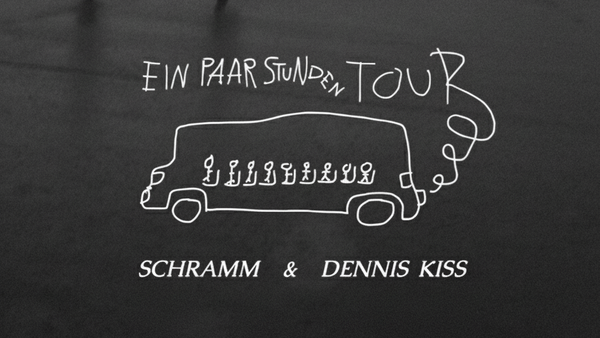 EIN PAAR STUNDEN TOUR
SCHRAMM & DENNIS KISS